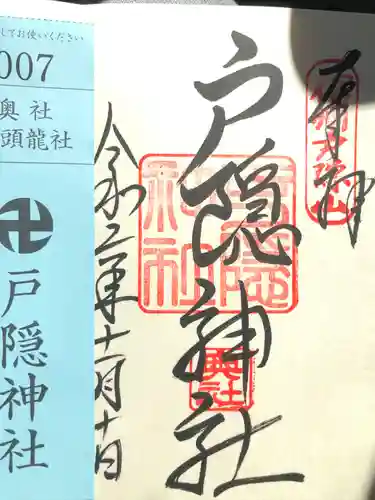 奉拝
戸隠神社
令和二年十一月十日
戸隠神社
奥社
してお使いください
007
奥社
頭龍社
卍
戸隠神社